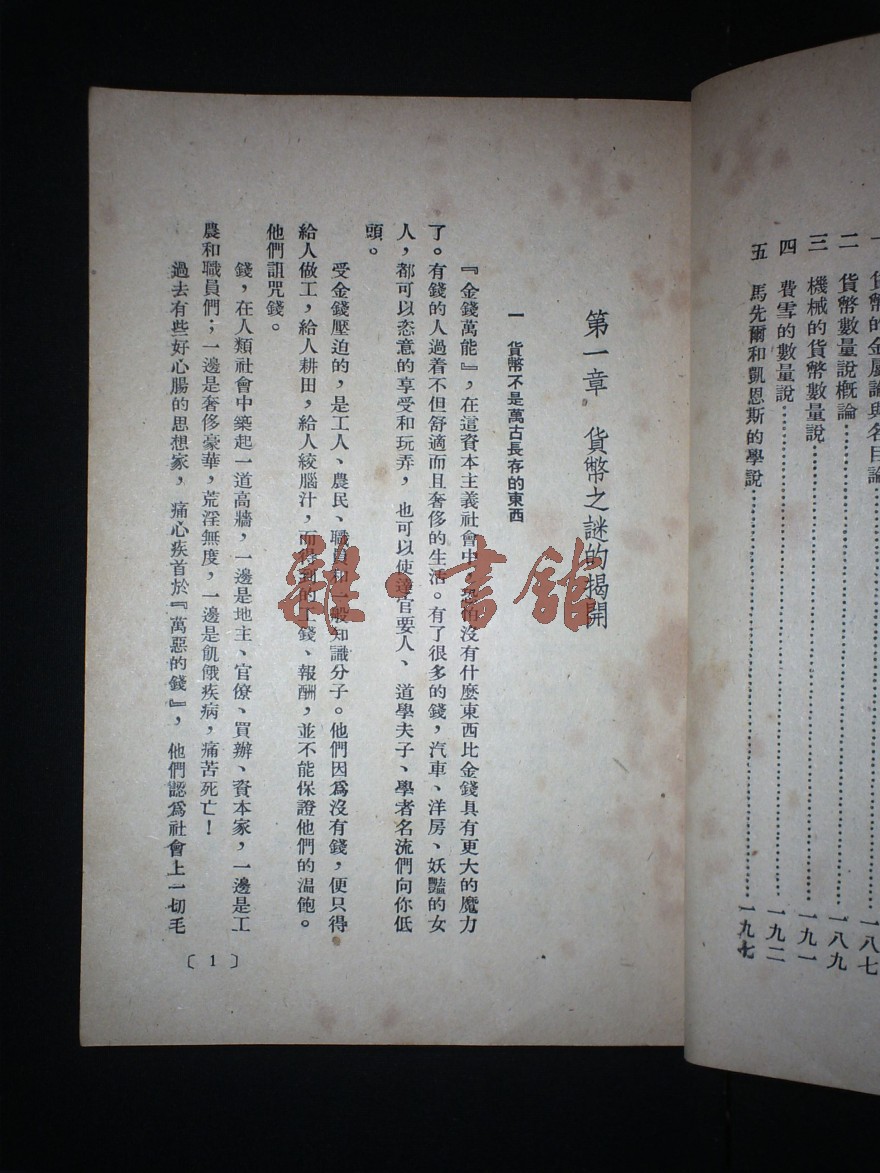 一 貨幣的金屬論與名目論……一八七
二 貨幣數量說概論……一八九
三 機械的貨幣數量說……一九一
四 費雪的數量說……一九二
五 馬先爾和凱恩斯的學說……一九七
第一章 貨幣之謎的揭開
一 貨幣不是萬古長存的東西
『金錢萬能』，在這資本主義社會中，恐怕沒有什麼東西比金錢具有更大的魔力
了。有錢的人過着不但舒適而且奢侈的生活。有了很多的錢，汽車、洋房、妖豔的女
人，都可以恣意的享受和玩弄，也可以使達官要人、道學夫子、學者名流們向你低
頭。
受金錢壓迫的，是工人、農民、職員和一般知識分子。他們因爲沒有錢，便只得
給人做工，給人耕田，給人絞腦汁，而得到的工錢、報酬，並不能保證他們的温飽。
他們詛咒錢。
錢，在人類社會中築起一道高牆，一邊是地主、官僚、買辦、資本家，一邊是工
農和職員們；一邊是奢侈豪華，荒淫無度，一邊是飢餓疾病，痛苦死亡！
過去有些好心腸的思想家，痛心疾首於『萬惡的錢』，他們認爲社會上一切毛
〔1〕
雜·書館